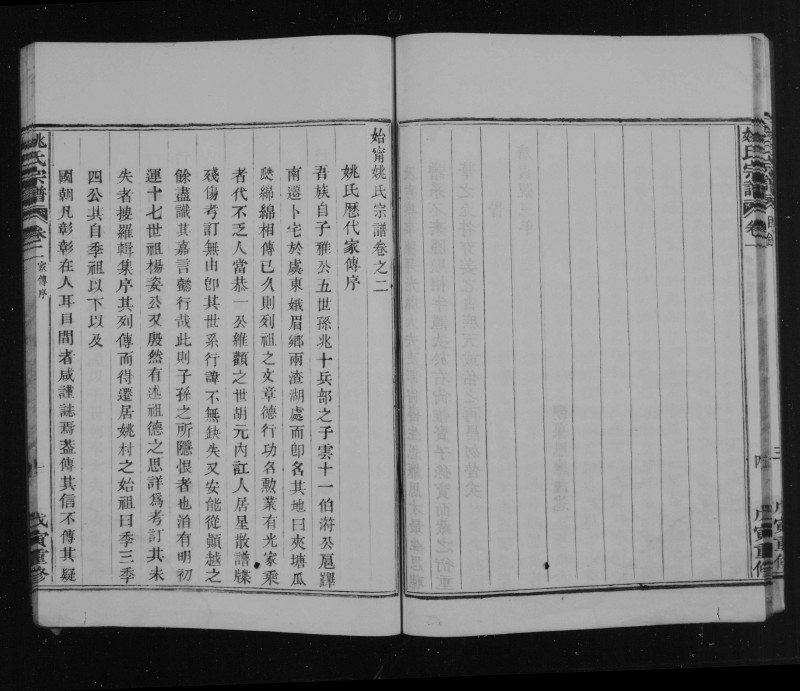 姚氏宗譜
卷一
三
四
戊寅重修
始甯姚氏宗譜卷之二
姚氏歷代家傳序
吾族自子雅公五世孫兆十兵部之子雲十一伯游公扈蹕
南遷卜宅於虞東娥眉鄉兩渣湖處而卽名其地曰夾塘瓜
瓞綿綿相傳已久則列祖之文章德行功名勲業有光家乘
者代不乏人當恭一公維觀之世胡元內訌人居星散譜牒
殘傷考訂無由卽其世系行諱不無缺失又安能從顚越之
餘盡識其嘉言懿行哉此則子孫之所隱恨者也洎有明初
運十七世祖楊妄公又殷然有述祖德之思詳爲考訂其未
失者摟羅輯集序其列傳而得遷居姚村之始祖曰季三季
四公其自季祖以下以及
國朝凡彰彰在人耳目間者咸謹誌焉葢傳其信不傳其疑
姚氏宗譜
卷二
家傳序
一
戊寅重修